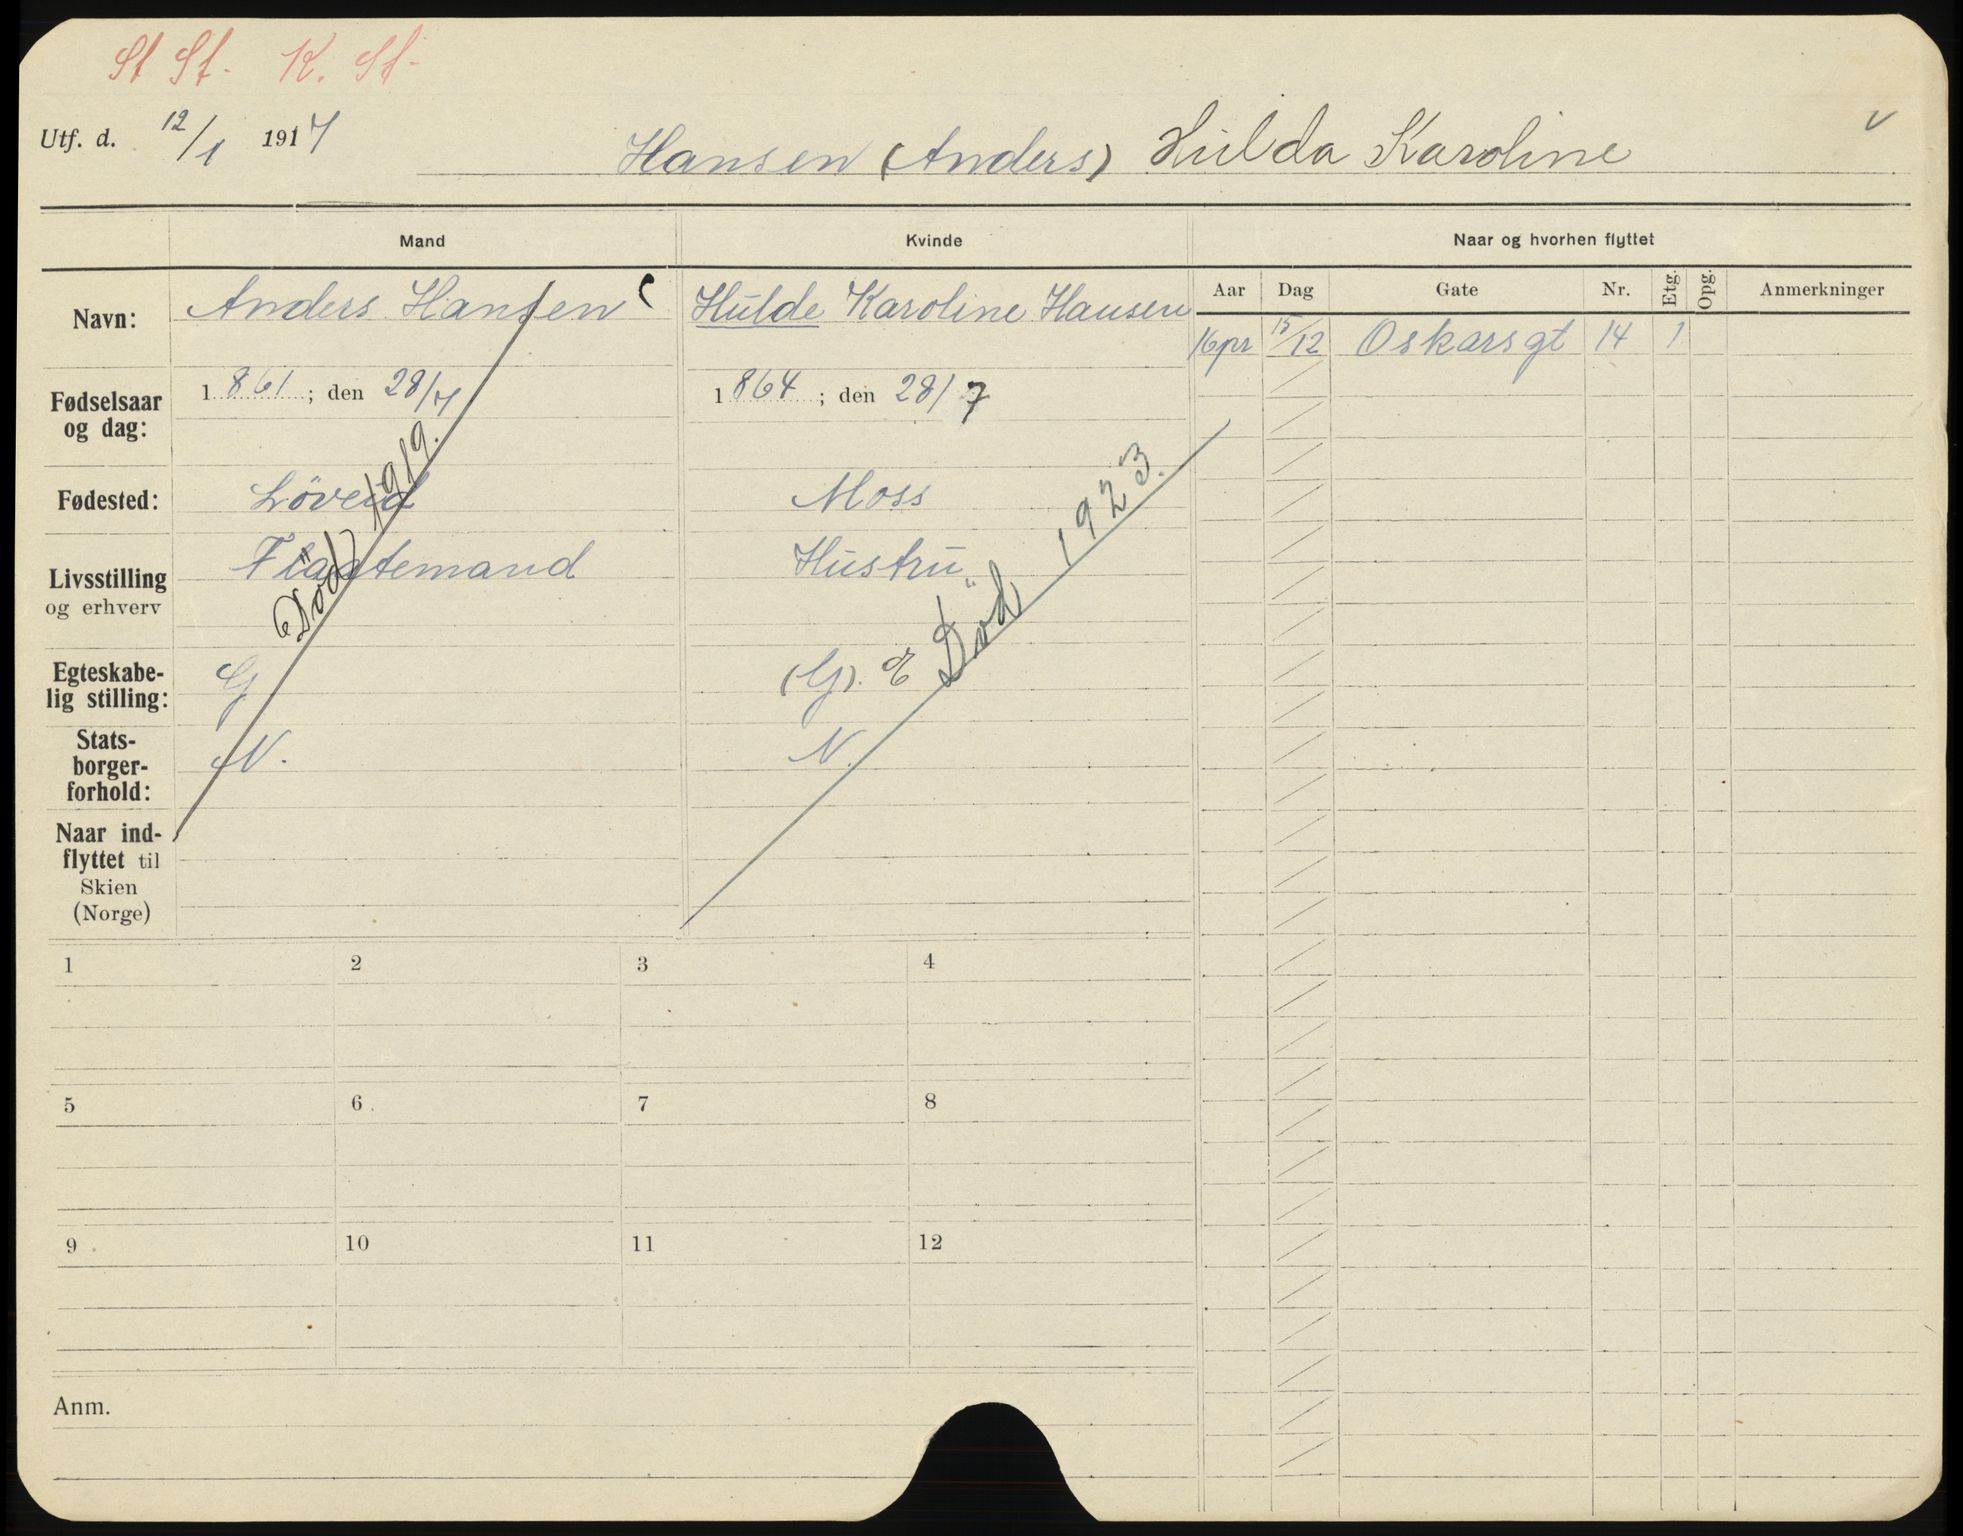 St St. K. St.
Utf. d. 12/1 1917
Hansen (Anders) Hilda Karoline
Mand Kvinde Naar og hvorhen flyttet
Navn: Anders Hansen Hulde Karoline Hansen
Aar Dag Gate Nr. Etg. Opg. Anmerkninger
16pr 15/12 Oskarsgt 14 1
Fødselsaar og dag: 1861; den 28/4 1864; den 28/7
Fødested: Löveid Moss
Livsstilling og erhverv Flaatemand Hustru
Egteskabe-
lig stilling: G (G). E
Stats-
borger-
forhold: N. N.
Död 1919.
Död 1923.
Naar ind-
flyttet til
Skien
(Norge)
1 2 3 4
5 6 7 8
9 10 11 12
Anm.